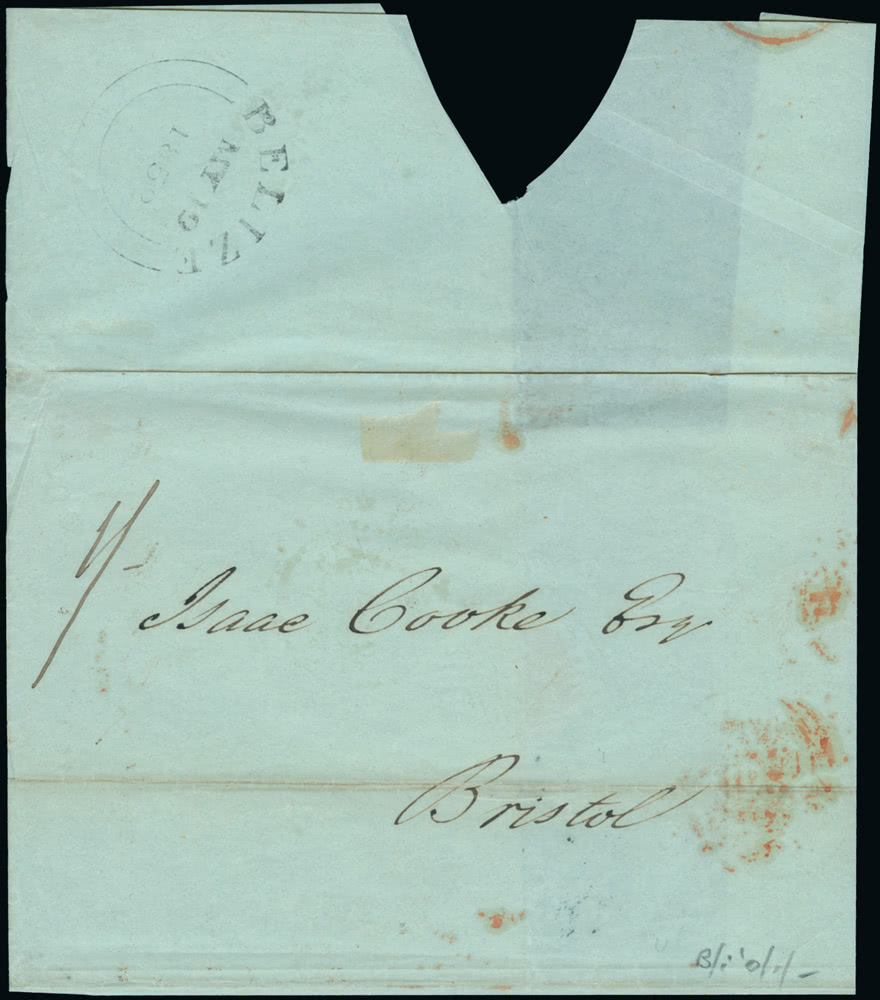 BELIZE
MY 19
1/-
Isaac Cooke Esq
Bristol